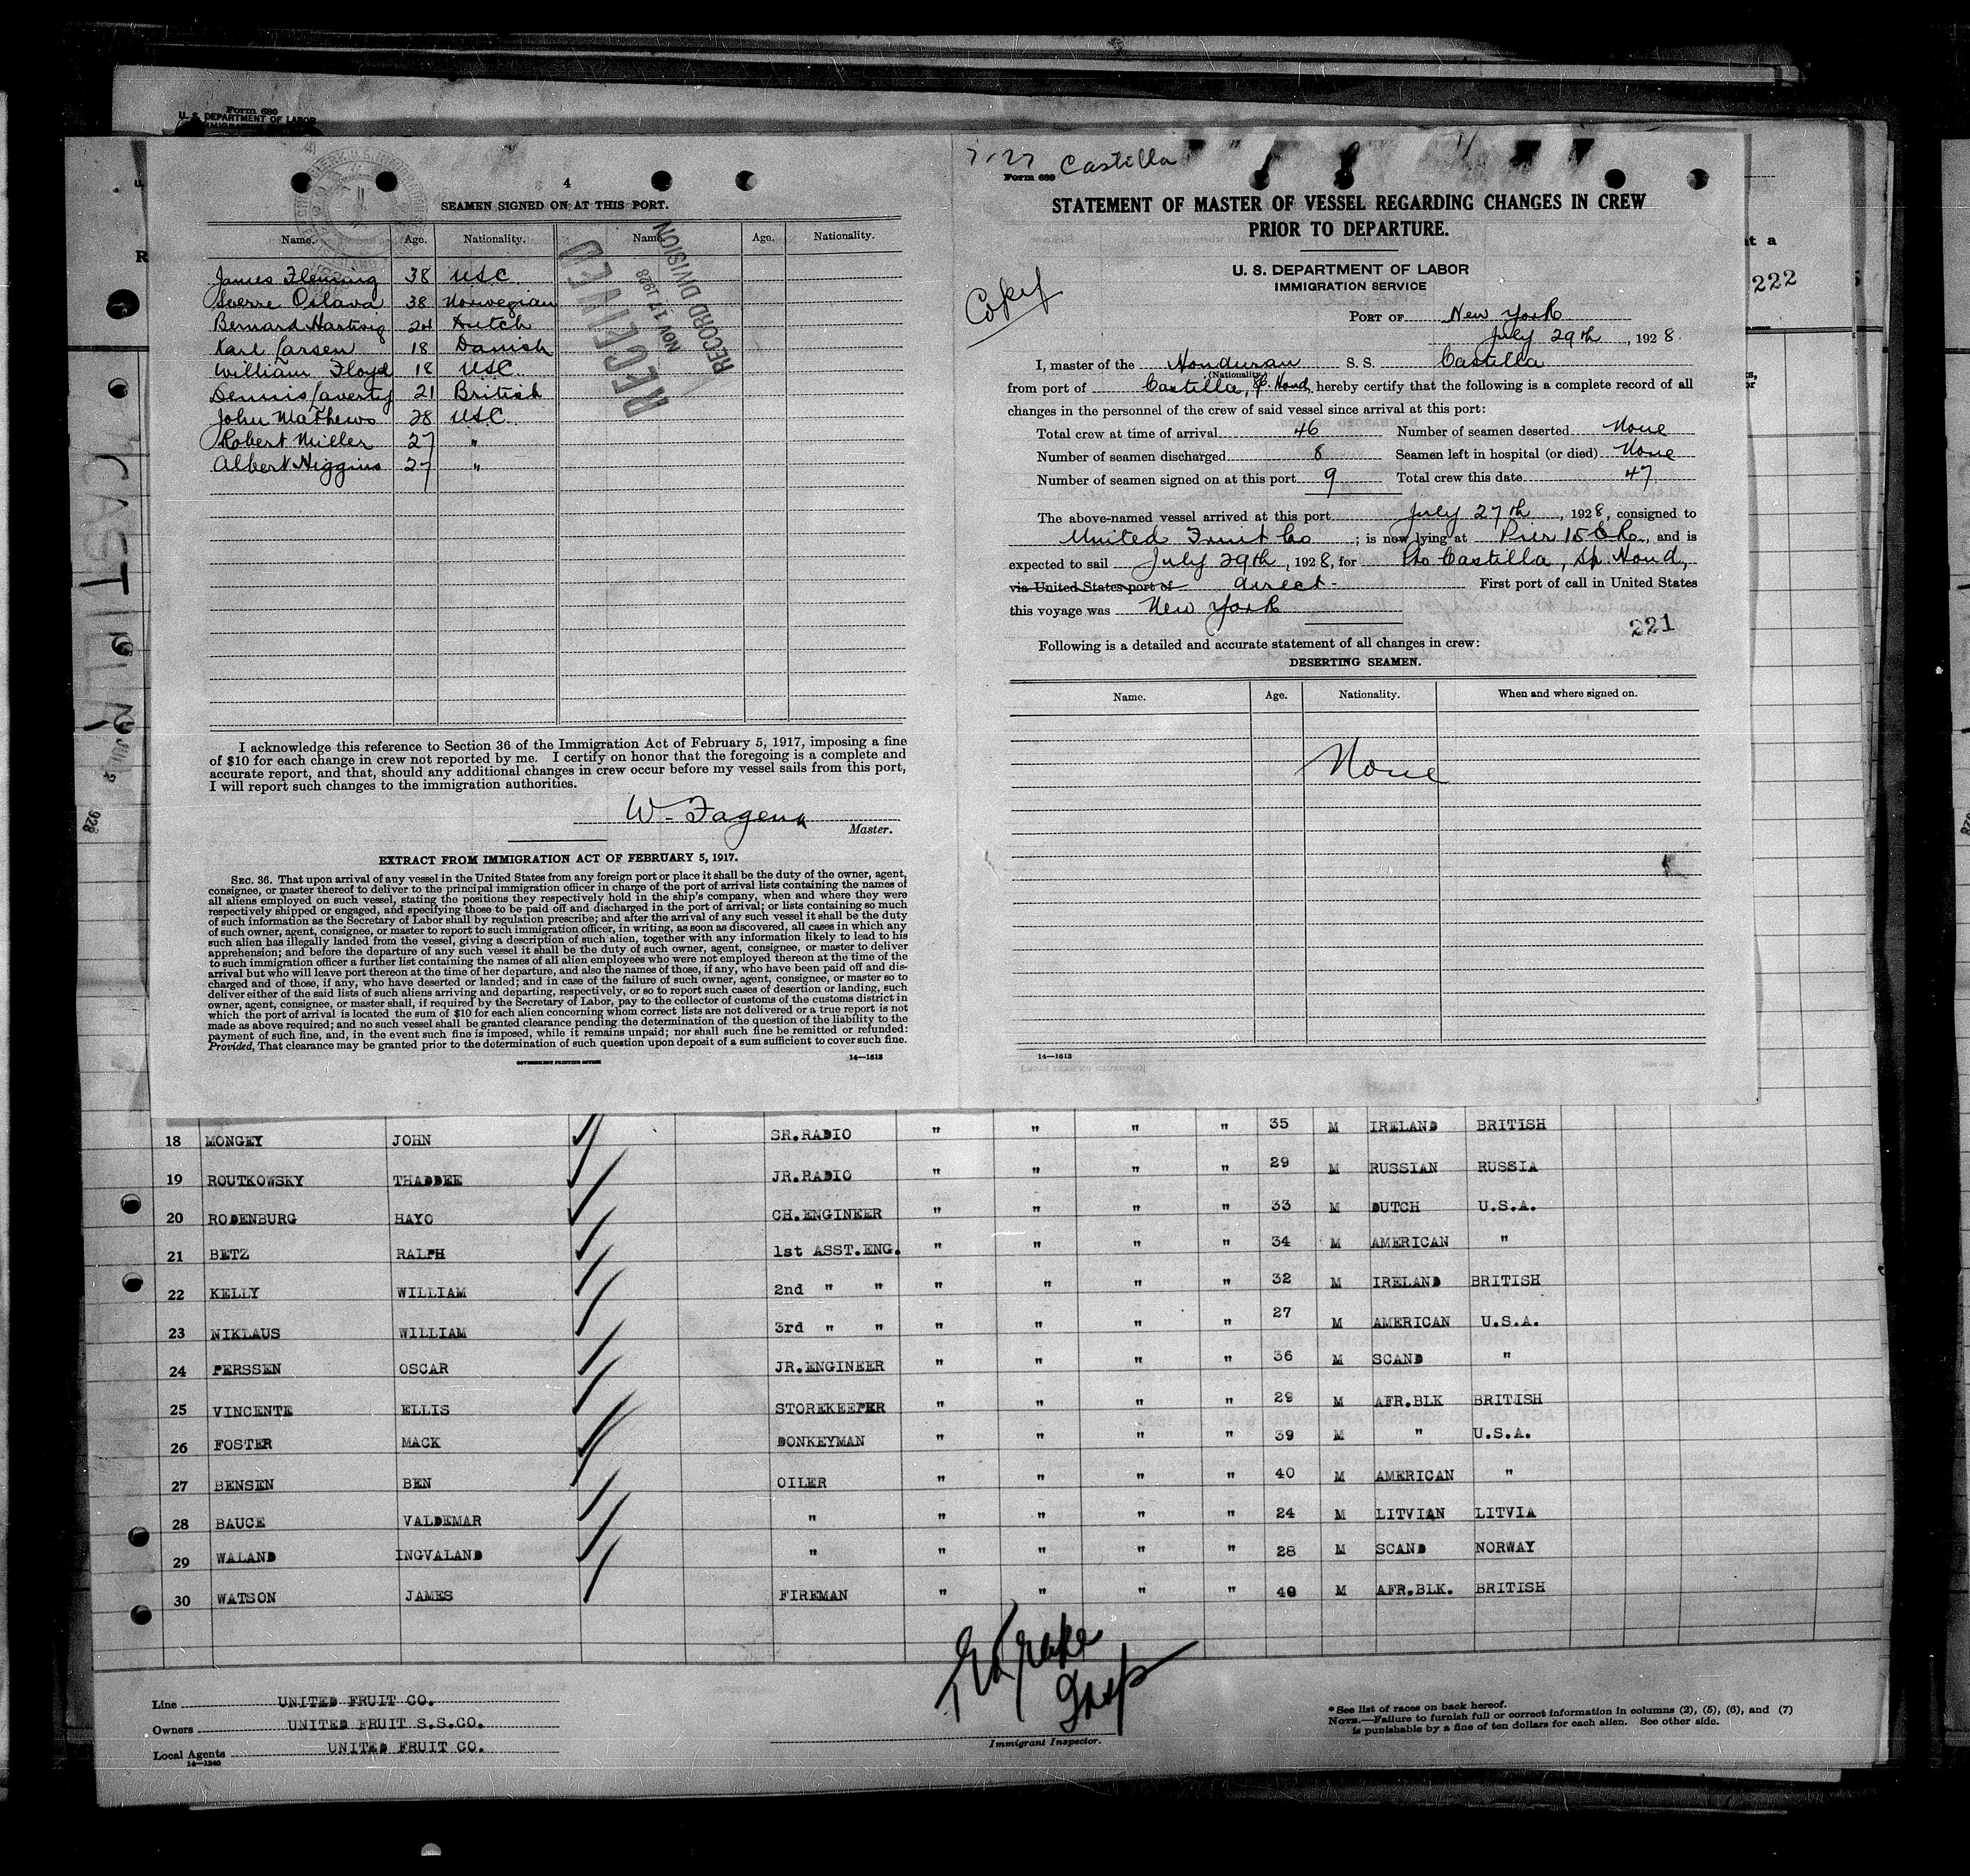 Form 689
U. S. DEPARTMENT OF LABOR
4
SEAMEN SIGNED ON AT THIS PORT.
Name. Age. Nationality. Name. Age. Nationality.
James Fleming 38 USC
Sverre Oslava 38 Norwegian
Bernard Hartwig 24 Dutch
Karl Larsen 18 Danish
William Floyd 18 USC
Dennis 21 British
John Mathews 28 USC
Robert Miller 27 "
Albert Higgins 27 "
RECEIVED
NOV 17 1928
RECORD DIVISION
I acknowledge this reference to Section 36 of the Immigration Act of February 5, 1917, imposing a fine
of $10 for each change in crew not reported by me. I certify on honor that the foregoing is a complete and
accurate report, and that, should any additional changes in crew occur before my vessel sails from this port,
I will report such changes to the immigration authorities.
W. Fagen
Master.
EXTRACT FROM IMMIGRATION ACT OF FEBRUARY 5, 1917.
SEC. 36. That upon arrival of any vessel in the United States from any foreign port or place it shall be the duty of the owner, agent,
consignee, or master thereof to deliver to the principal immigration officer in charge of the port of arrival lists containing the names of
all aliens employed on such vessel, stating the positions they respectively hold in the ship's company, when and where they were
respectively shipped or engaged, and specifying those to be paid off and discharged in the port of arrival; or lists containing so much
of such information as the Secretary of Labor shall by regulation prescribe; and after the arrival of any such vessel it shall be the duty
of such owner, agent, consignee, or master to report to such immigration officer, in writing, as soon as discovered, all cases in which any
such alien has illegally landed from the vessel, giving a description of such alien, together with any information likely to lead to his
apprehension; and before the departure of any such vessel it shall be the duty of such owner, agent, consignee, or master to deliver
to such immigration officer a further list containing the names of all alien employees who were not employed thereon at the time of the
arrival but who will leave port thereon at the time of her departure, and also the names of those, if any, who have been paid off and dis-
charged and of those, if any, who have deserted or landed; and in case of the failure of such owner, agent, consignee, or master so to
deliver either of the said lists of such aliens arriving and departing, respectively, or so to report such cases of desertion or landing, such
owner, agent, consignee, or master shall, if required by the Secretary of Labor, pay to the collector of customs of the customs district in
which the port of arrival is located the sum of $10 for each alien concerning whom correct lists are not delivered or a true report is not
made as above required; and no such vessel shall be granted clearance pending the determination of the question of the liability to the
payment of such fine, and, in the event such fine is imposed, while it remains unpaid; nor shall such fine be remitted or refunded:
Provided, That clearance may be granted prior to the determination of such question upon deposit of a sum sufficient to cover such fine.
GOVERNMENT PRINTING OFFICE
14—1613
7-27 Castilla
Form 689
STATEMENT OF MASTER OF VESSEL REGARDING CHANGES IN CREW
PRIOR TO DEPARTURE.
U. S. DEPARTMENT OF LABOR
IMMIGRATION SERVICE
Copy
PORT OF New York
July 29th, 1928.
I, master of the Honduran S. S. Castilla
(Nationality)
from port of Castilla, Sp. Hond, hereby certify that the following is a complete record of all
changes in the personnel of the crew of said vessel since arrival at this port:
Total crew at time of arrival 46 Number of seamen deserted None
Number of seamen discharged 8 Seamen left in hospital (or died) None
Number of seamen signed on at this port 9 Total crew this date 47
The above-named vessel arrived at this port July 27th, 1928, consigned to
United Fruit Co; is now lying at Pier 15 E R, and is
expected to sail July 29th, 1928, for Pto Castilla, Sp Hond,
via United States port of direct - First port of call in United States
this voyage was New York
221
Following is a detailed and accurate statement of all changes in crew:
DESERTING SEAMEN.
Name. Age. Nationality. When and where signed on.
None
14—1613
222
CASTILLA
18 MONGEY JOHN SR.RADIO " " " " 35 M IRELAND BRITISH
19 ROUTKOWSKY THADDEE JR.RADIO " " " " 29 M RUSSIAN RUSSIA
20 RODENBURG HAYO CH.ENGINEER " " " " 33 M DUTCH U.S.A.
21 BETZ RALPH 1st ASST.ENG. " " " " 34 M AMERICAN "
22 KELLY WILLIAM 2nd " " " " " " 32 M IRELAND BRITISH
23 NIKLAUS WILLIAM 3rd " " " " " " 27 M AMERICAN U.S.A.
24 PERSSEN OSCAR JR.ENGINEER " " " " 36 M SCAND "
25 VINCENTE ELLIS STOREKEEPER " " " " 29 M AFR.BLK BRITISH
26 FOSTER MACK DONKEYMAN " " " " 39 M " U.S.A.
27 BENSEN BEN OILER " " " " 40 M AMERICAN "
28 BAUCE VALDEMAR " " " " " 24 M LITVIAN LITVIA
29 WALAND INGVALAND " " " " " 28 M SCAND NORWAY
30 WATSON JAMES FIREMAN " " " " 40 M AFR.BLK. BRITISH
Line UNITED FRUIT CO.
Owners UNITED FRUIT S.S.CO.
Local Agents UNITED FRUIT CO.
14—1240
Immigrant Inspector.
*See list of races on back hereof.
NOTE.—Failure to furnish full or correct information in columns (2), (5), (6), and (7)
is punishable by a fine of ten dollars for each alien. See other side.